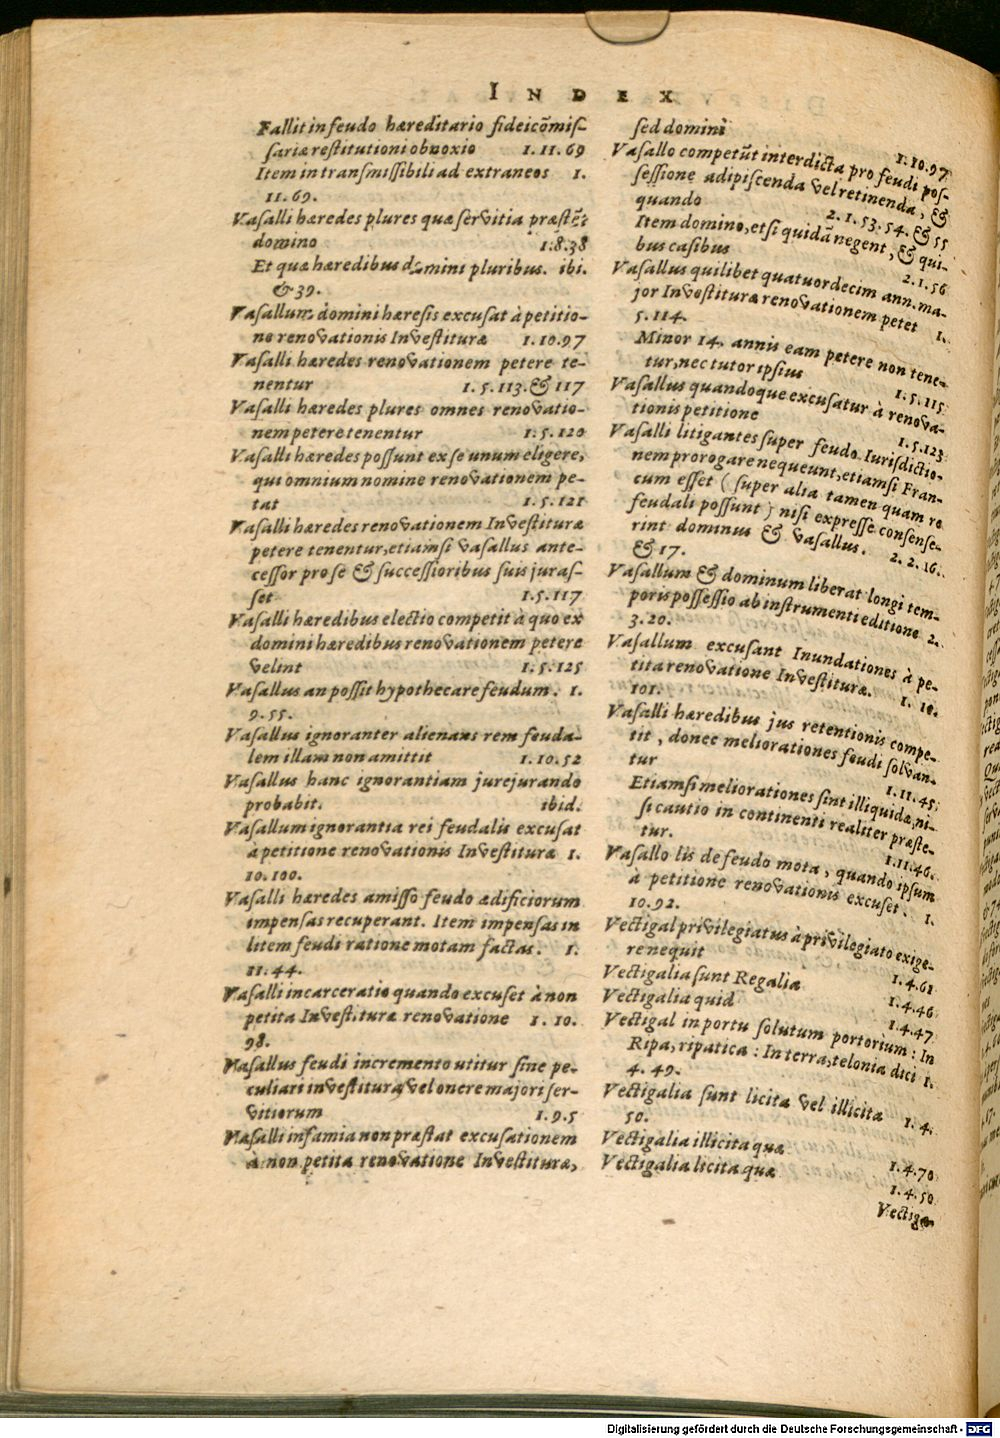 INDEX
Fallit in feudo hæreditario fideicõmiſ-
ſariæ reſtitutioni obnoxio 1. 11. 69
Item in tranſmiſſibili ad extraneos 1.
11. 69.
Vaſalli hæredes plures quæ ſervitia præſtēt
domino 1.8.38
Et quæ hæredibus domini pluribus. ibi.
& 39.
Vaſallum domini hæreſis excuſat à petitio-
ne renovationis Inveſtituræ 1.10.97
Vaſalli hæredes renovationem petere te-
nentur 1. 5. 113. & 117
Vaſalli hæredes plures omnes renovatio-
nem petere tenentur 1. 5. 120
Vaſalli hæredes poſſunt ex ſe unum eligere,
qui omnium nomine renovationem pe-
tat 1. 5. 121
Vaſalli hæredes renovationem Inveſtituræ
petere tenentur, etiamſi vaſallus ante-
ceſſor pro ſe & ſucceſſioribus ſuis juraſ-
ſet 1.5.117
Vaſalli hæredibus electio competit à quo ex
domini hæredibus renovationem petere
velint 1. 5. 125
Vaſallus an poſſit hypothecare feudum. 1.
9. 55.
Vaſallus ignoranter alienans rem feuda-
lem illam non amittit 1. 10. 52
Vaſallus hanc ignorantiam jurejurando
probabit. ibid.
Vaſallum ignorantia rei feudalis excuſat
à petitione renovationis Inveſtituræ 1.
10. 100.
Vaſalli hæredes amiſſo feudo ædificiorum
impenſas recuperant. Item impenſas in
litem feudi ratione motam factas. 1.
11. 44.
Vaſalli incarceratio quando excuſet à non
petita Inveſtituræ renovatione 1. 10.
98.
Vaſallus feudi incremento utitur ſine pe-
culiari inveſtitura, vel onere majori ſer-
vitiorum 1. 9. 5
Vaſalli infamia non præſtat excuſationem
à non petita renovatione Inveſtituræ,
ſed domini 1. 10. 97
Vaſallo competūt interdicta pro feudi poſ-
ſeſſione adipiſcenda vel retinenda, &
quando 2. 1. 53. 54. & 55
Item domino, etſi quidā negent, & qui-
bus caſibus 2. 1. 56
Vaſallus quilibet quatuordecim ann. ma-
jor Inveſtituræ renovationem petet 1.
5. 114.
Minor 14. annis eam petere non tene-
tur, nec tutor ipſius 1. 5. 115
Vaſallus quandoque excuſatur à renova-
tionis petitione 1. 5. 123
Vaſalli litigantes ſuper feudo Iurisdictio-
nem prorogare nequeunt, etiamſi Fran-
cum eſſet ( ſuper alia tamen quam re
feudali poſſunt ) niſi expreſſe conſenſe-
rint dominus & vaſallus. 2. 2. 16.
& 17.
Vaſallum & dominum liberat longi tem-
poris poſſeſſio ab inſtrumenti editione 2.
3. 20.
Vaſallum excuſant Inundationes à pe-
tita renovatione Inveſtituræ. 1. 10.
101.
Vaſalli hæredibus jus retentionis compe-
tit, donec meliorationes feudi ſolvan-
tur 1. 11. 45.
Etiamſi meliorationes ſint illiquidæ, ni-
ſi cautio in continenti realiter præſte-
tur. 1. 11. 46.
Vaſallo lis de feudo mota, quando ipſum
à petitione renovationis excuſet. 1.
10. 92.
Vectigal privilegiatus à privilegiato exige-
re nequit 1. 4. 61
Vectigalia ſunt Regalia 1. 4. 46
Vectigalia quid 1. 4. 47
Vectigal in portu ſolutum portorium: In
Ripa, ripatica: In terra, telonia dici 1.
4. 49.
Vectigalia ſunt licita vel illicita 1. 4.
50.
Vectigalia illicita quæ 1. 4. 70
Vectigalia licita quæ 1. 4. 50
Vectiga-
Digitalisierung gefördert durch die Deutsche Forschungsgemeinschaft - DFG